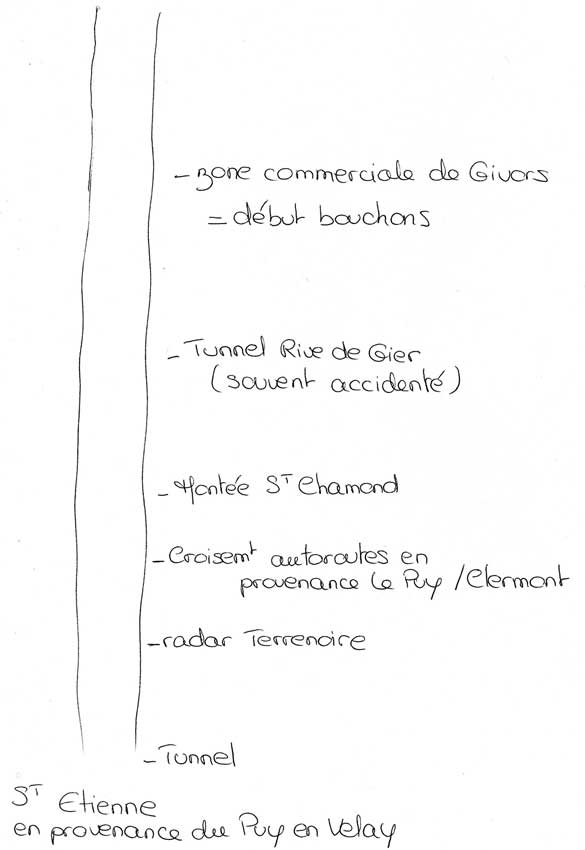 - zone commerciale de Givors
= début bouchons
- Tunnel Rive de Gier
(souvent accidenté)
- Montée S^T Chamond
- Croisem^t autoroutes en
provenance Le Puy / Clermont
- radar Terrenoire
- Tunnel
S^T Etienne
en provenance du Puy en Velay